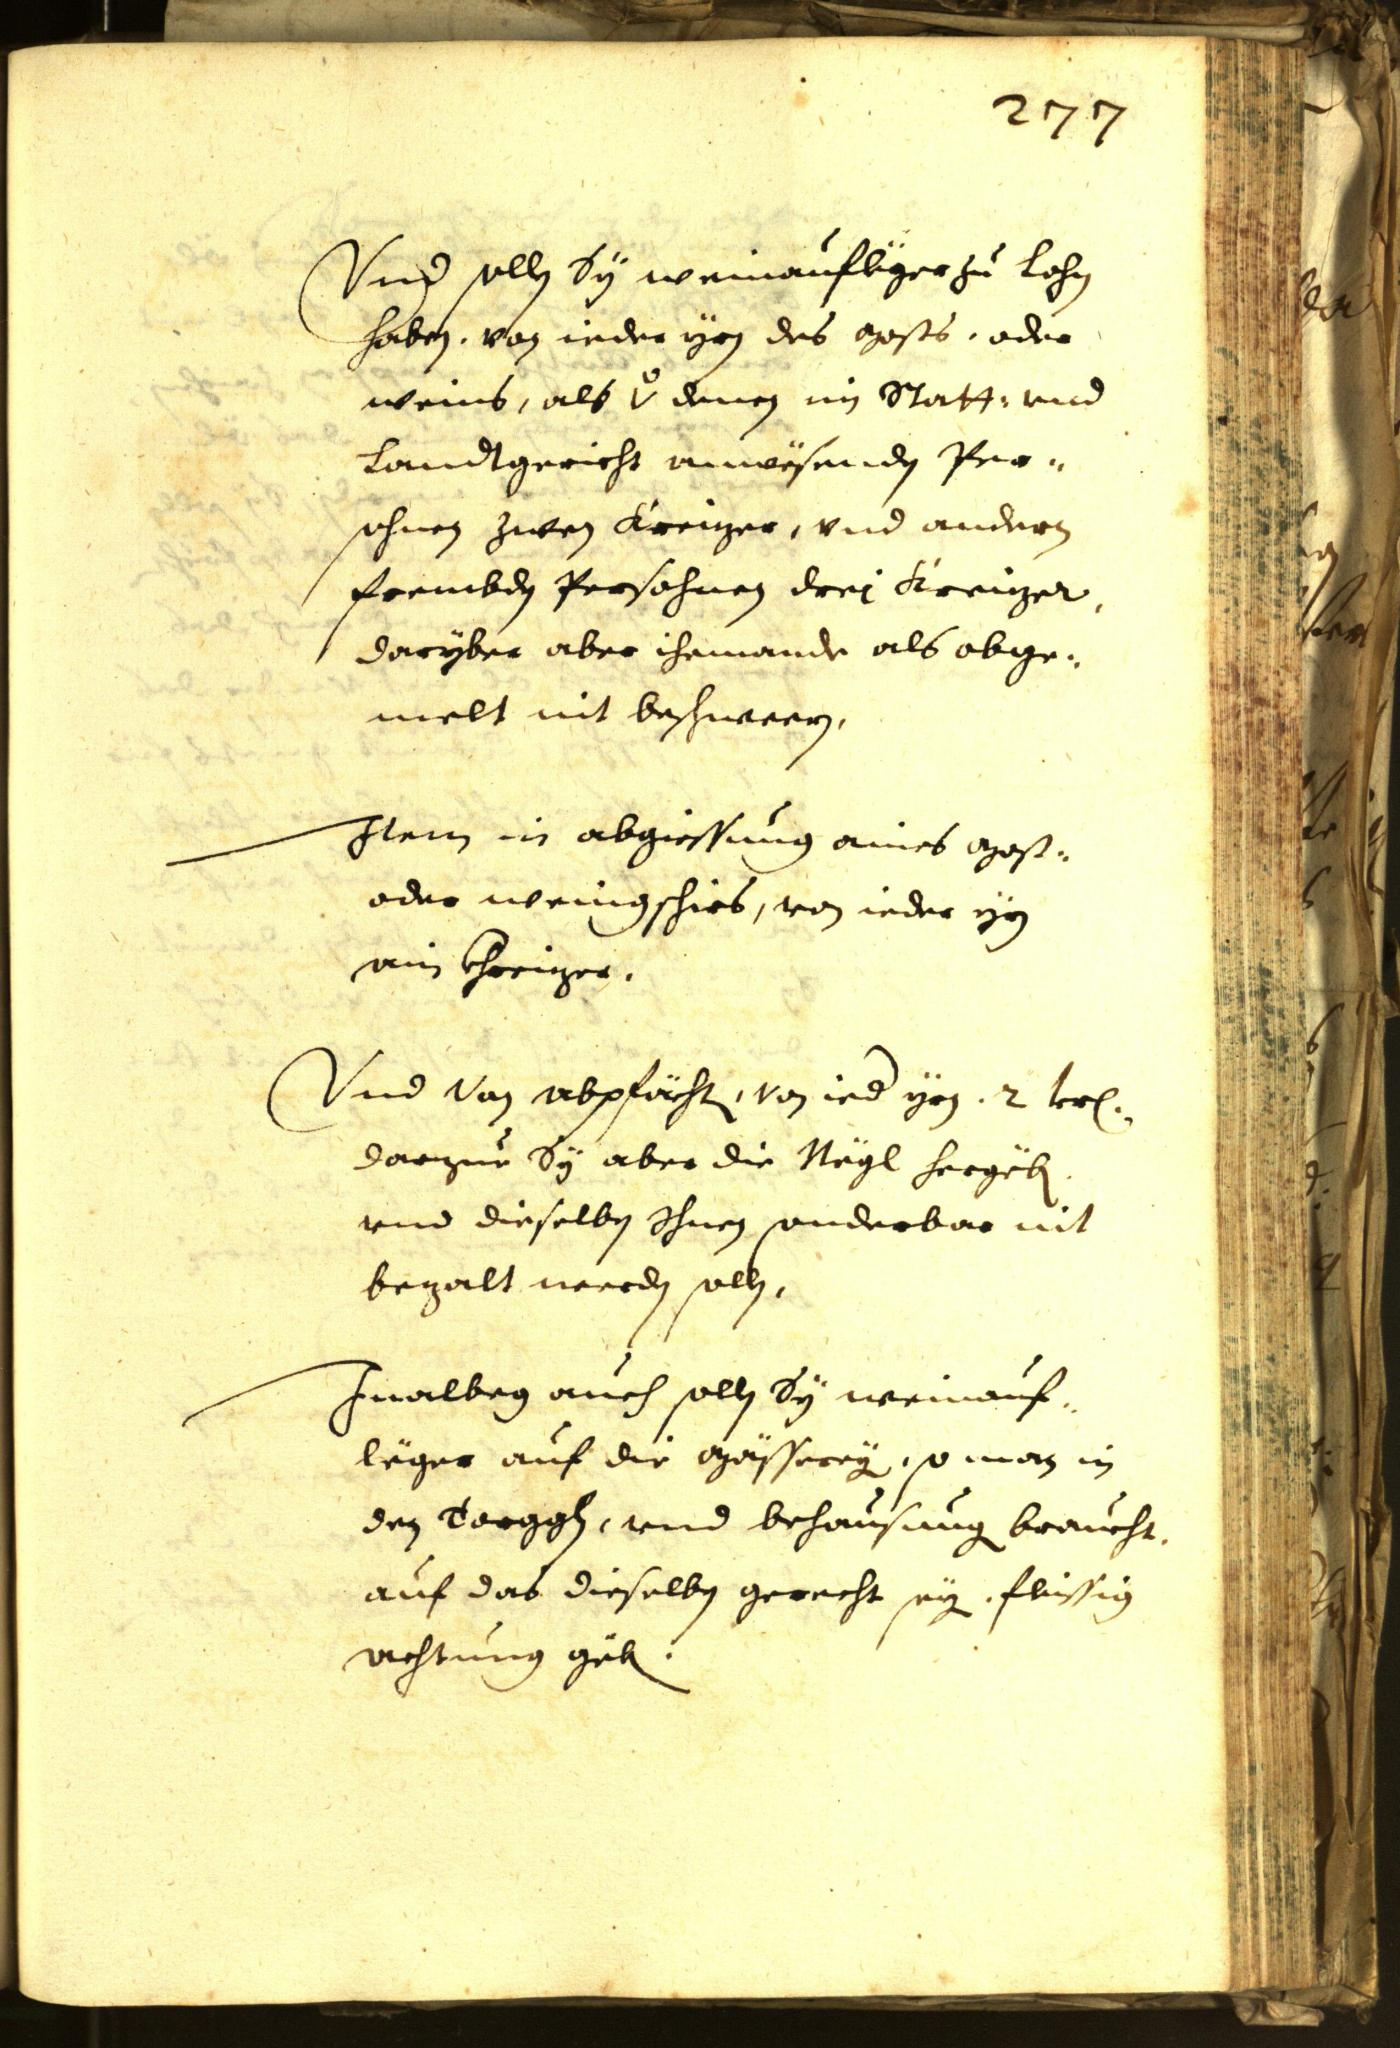 277
Vnd solln Sÿ weinaufleger zu Lohn
haben, von ieder ÿrn des mosts, oder
weins, als v̊ denen im Statt- vnd
Landtgericht anwesenden Per-
sohnen zwen Kreizer, vnd andern
frembdn Persohnen drej Kreizer,
darÿber aber ihemande als obge-
melt nit beschweren,
Item in abgiessung aines most-
oder weingschirs, von ieder ÿrn
ain Khreizer.
Vnd von abpfächt, von ied ÿrn . 2 krl.
darzue Sÿ aber die Nëgl hergëbn
vnd dieselben Ihnen sonderbar nit
bezalt werdn solln,
Inalweg auch solln Sÿ weinauf-
lëger auf die mässereÿ, so man in
den Torggln, vnd behausung braucht,
auf das dieselben gerecht seÿ, fleissig
achtung gebn.